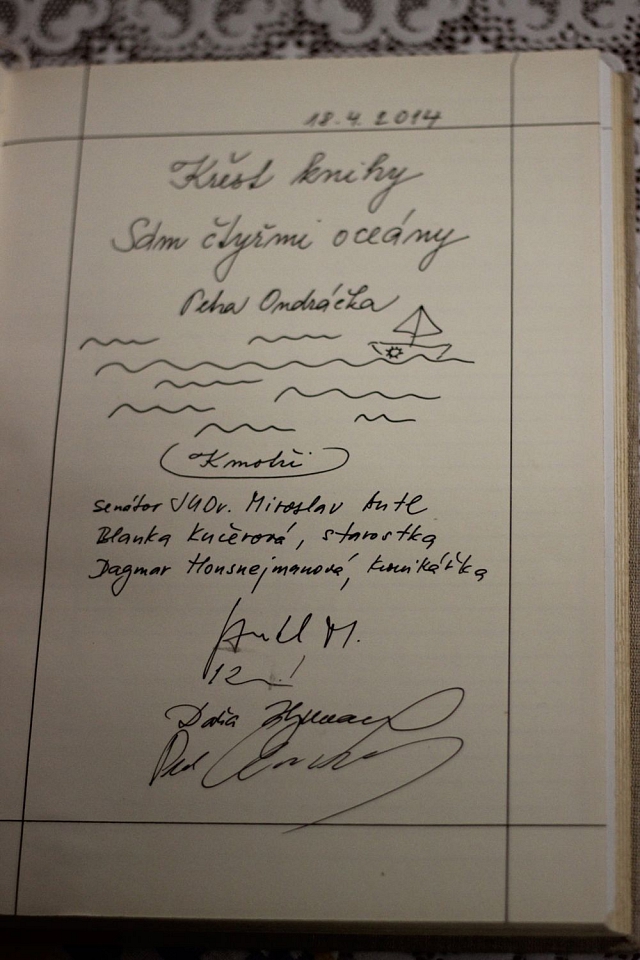 18.4.2014
Křest knihy
Sám čtyřmi oceány
Petra Ondráčka
Kmotři
senátor JUDr. Miroslav Antl
Blanka Kučerová, starostka
Dagmar Honsnejmanová, kronikářka
Antl M.